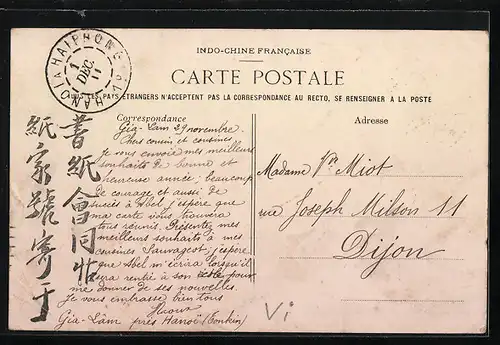 INDO-CHINE FRANÇAISE
CARTE POSTALE
TOUS LES PAYS ÉTRANGERS N'ACCEPTENT PAS LA CORRESPONDANCE AU RECTO, SE RENSEIGNER A LA POSTE
HANOI A HAIPHONG
1
DEC
11
Correspondance
Gia-Lâm 29 novembre
Chers cousin et cousines
Je vous envoie mes meilleurs
souhaits de bonne et
heureuse année; beaucoup
de courage et aussi de
succès à Abel j'espère que
ma carte vous trouvera
tous réunis. Présentez mes
meilleurs souhaits à mes
cousines Sauvageot, j'espère
que Abel m'écrira lorsqu'il
sera rentré à son école pour
me donner de ses nouvelles.
Je vous embrasse bien tous
Gia-Lâm près Hanoï (Tonkin)
書紙會同帖
紙家號寄于
Adresse
Madame Vve Miot
rue Joseph Milson 11
Dijon
Vi